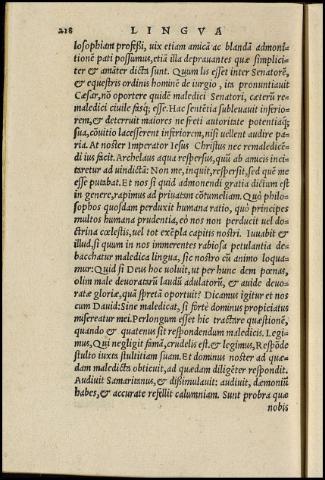 218 LINGVA
losophiam professi, uix etiam amicã ac blandã admoni-
tionẽ pati possumus, etiã illa deprauantes quæ simplici-
ter & amãter dicta sunt. Quum lis esset inter Senatorẽ,
& equestris ordinis hominẽ de iurgio, ita pronuntiauit
Cæsar, nõ oportere quidẽ maledici Senatori, cæterũ re-
maledici ciuile fasq́; esse. Hac sentẽtia subleuauit inferio-
rem, & deterruit maiores ne freti autoritate potentiaq́;
sua, cõuitio lacesserent inferiorem, nisi uellent audire pa-
ria. At noster Imperator Iesus Christus nec remaledicẽ-
di ius facit. Archelaus aqua respersus, quũ ab amicis inci-
taretur ad uindictã: Non me, inquit, respersit, sed quẽ me
esse putabat. Et nos si quid admonendi gratia dictum est
in genere, rapimus ad priuatam cõtumeliam. Quò philo-
sophos quosdam perduxit humana ratio, quò principes
multos humana prudentia, eò nos non perducit uel do-
ctrina cœlestis, uel tot exẽpla capitis nostri. Iuuabit &
illud, si quum in nos immerentes rabiosa petulantia de-
bacchatur maledica lingua, sic nostro cũ animo loqua-
mur: Quid si Deus hoc uoluit, ut per hunc dem pœnas,
olim male deuoratarũ laudũ adulatorũ, & auide deuo-
ratæ gloriæ, quã spretã oportuit? Dicamus igitur et nos
cum Dauid: Sine maledicat, si fortè dominus propiciatus
misereatur mei. Perlongum esset hic tractare quæstionẽ,
quando & quatenus sit respondendum maledicis. Legi-
mus, Qui negligit famã, crudelis est. & legimus, Respõde
stulto iuxta stultitiam suam. Et dominus noster ad quæ-
dam maledicta obticuit, ad quædam diligẽter respondit.
Audiuit Samaritanus, & dißimulauit: audiuit, dæmoniũ
habes, & accurate refellit calumniam. Sunt probra quæ
nobis